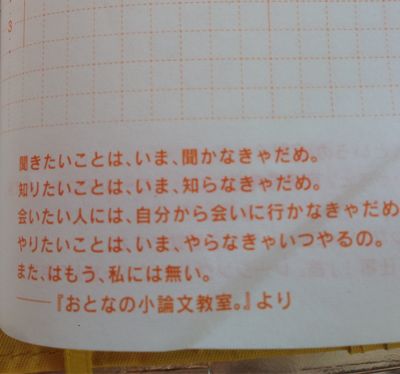 3
聞きたいことは、いま、聞かなきゃだめ。
知りたいことは、いま、知らなきゃだめ。
会いたい人には、自分から会いに行かなきゃだめ
やりたいことは、いま、やらなきゃいつやるの。
また、はもう、私には無い。
——『おとなの小論文教室。』より